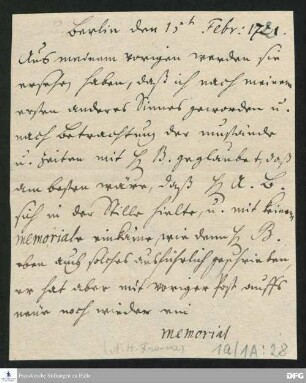 Berlin den 15t Febr: 1721.
Aus meinem vorigen werden sie
ersehen haben, daß ich nach meinem
ersten anderes Sinnes geworden u.
nach betrachtung der umstände
u. Zeiten mit H B. geglaubet, daß
am besten wäre, daß H A. B.
sich in der Stille hielte, u. mit keinem
memorial einkäme, wie denn H B.
eben aus solches ausführlich geschrieben,
er hat aber mit voriger post auffs
neue noch wieder ein
memorial
(A. H. Francke)
1a/1A:28
Franckesche Stiftungen zu Halle
DFG